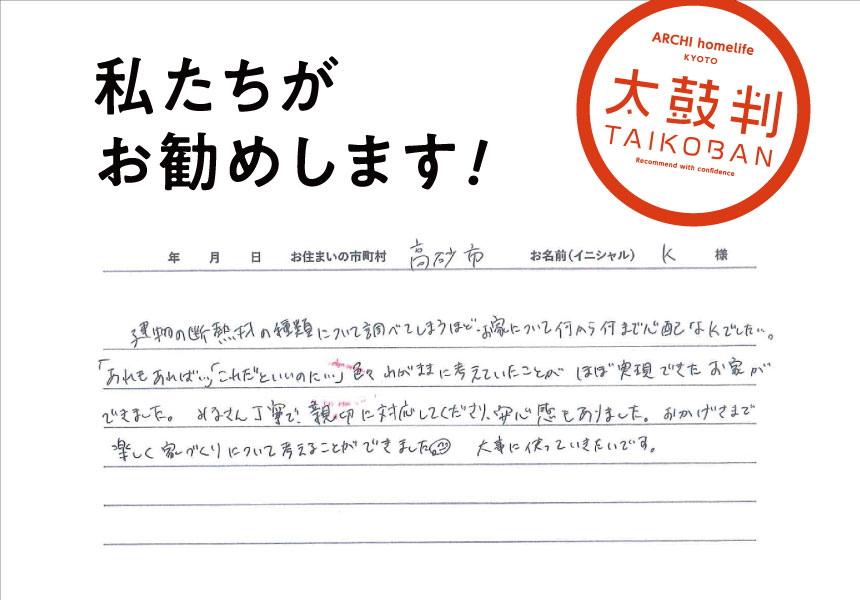 私たちが
お勧めします!
ARCHI homelife
KYOTO
太鼓判
TAIKOBAN
Recommend with confidence
年 月 日 お住まいの市町村 高砂市 お名前(イニシャル) K 様
建物の断熱材の種類について調べてしまうほど、お家について何から何まで心配なKでしたい。
「あれもあれば…」「これだといいのに…」色々わがままに考えていたことが ほぼ実現できたお家が
できました。 みなさん丁寧で、親切に対応してくださり、安心感もありました。おかげさまで
楽しく家づくりについて考えることができました 大事に使っていきたいです。